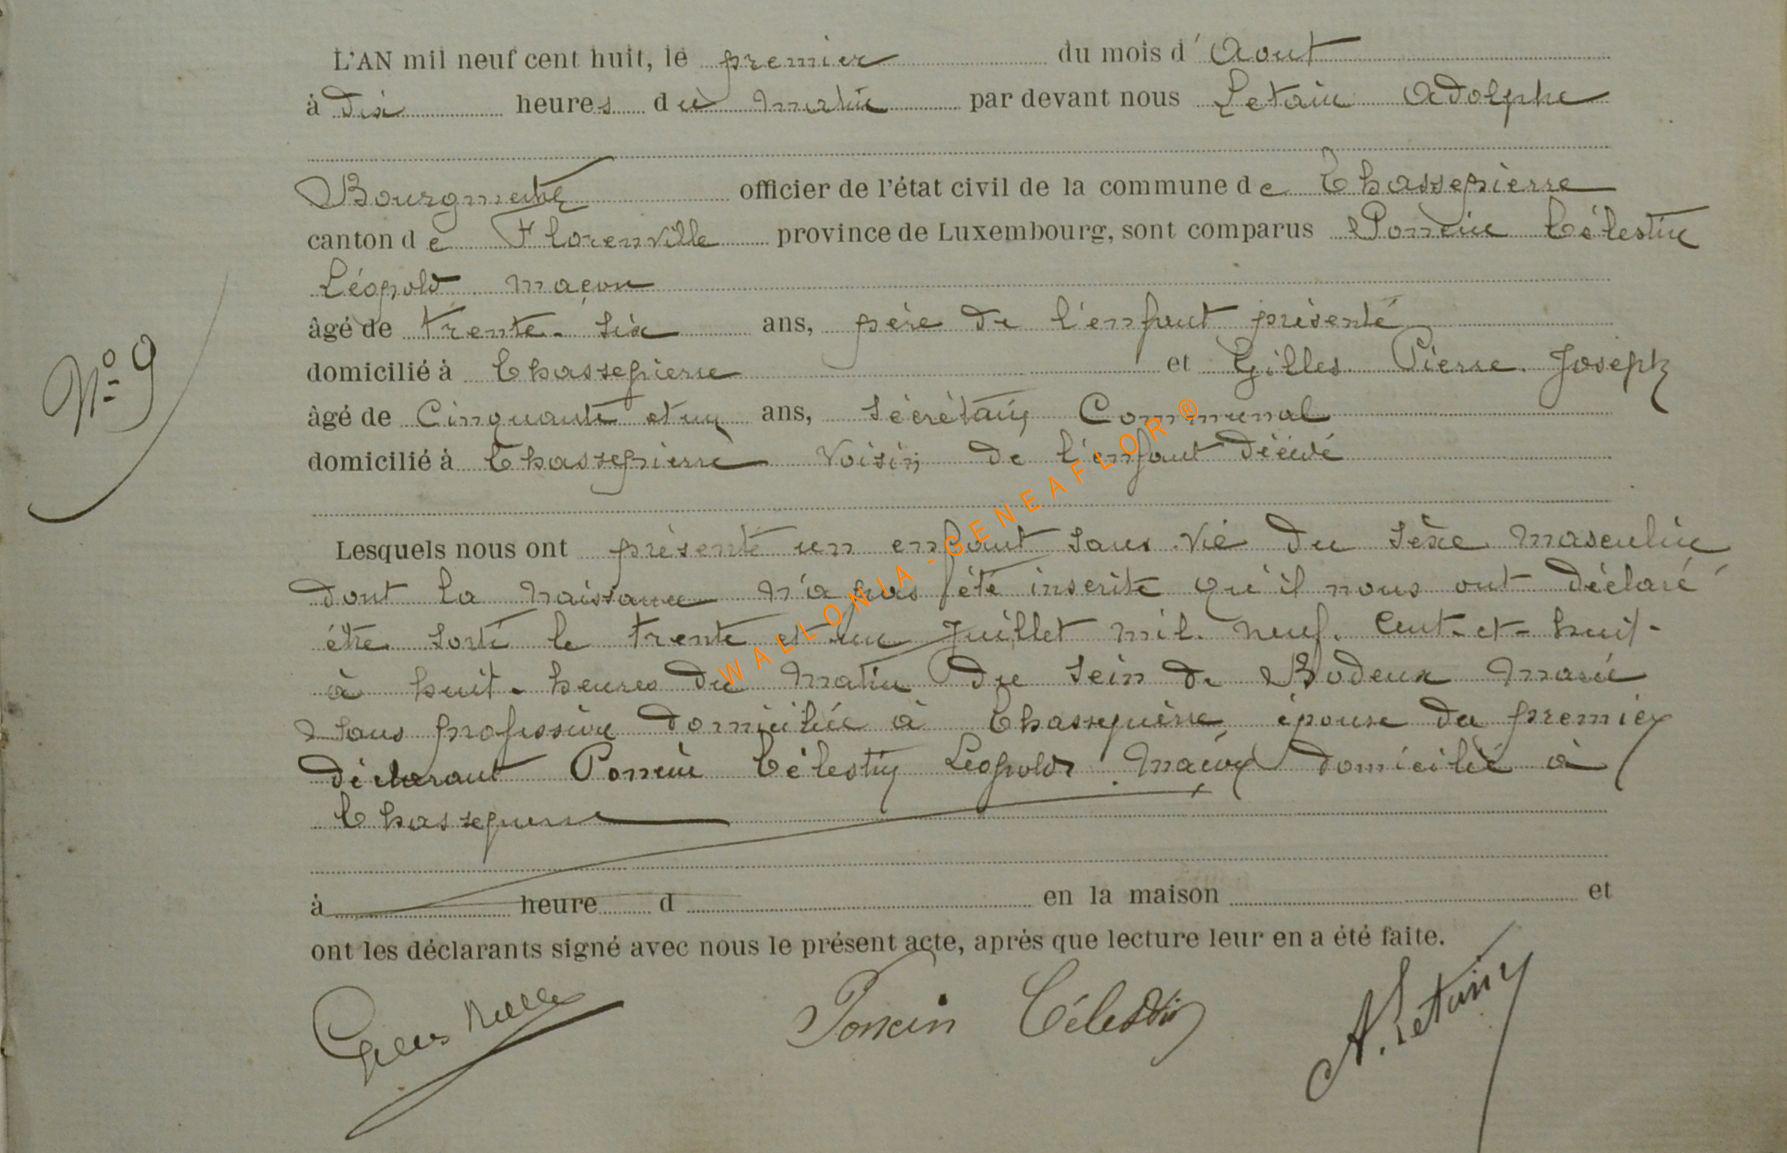 L'AN mil neuf cent huit, le premier du mois d'Aout
à dix heures du matin par devant nous Letain Adolphe
Bourgmestre officier de l'état civil de la commune de Chassepierre
canton de Florenville province de Luxembourg, sont comparus Poncin Célestin
Léopold maçon
âgé de trente-six ans, père de l'enfant présenté
N° 9
domicilié à Chassepierre et Gilles Pierre Joseph
âgé de Cinquante et un ans, Sécrétaire Communal
domicilié à Chassepierre Voisin de l'enfant décédé
Lesquels nous ont présenté un enfant sans vie du sèxe masculin
dont la naissance n'a pas été inscrite qu'il nous ont déclaré
être sorti le trente et un Juillet mil. neuf. Cent-et-huit-
à huit-heures du matin du sein de Bodeux Marie
sans profession domiciliée à Chassepierre, épouse du premier
déclarant Poncin Célestin Léopold, maçon domicilié à
Chassepierre
à heure d en la maison et
ont les déclarants signé avec nous le présent acte, après que lecture leur en a été faite.
Gilles Poncin Célestin A. Letain
WALLONIA-GENEAFLOR®